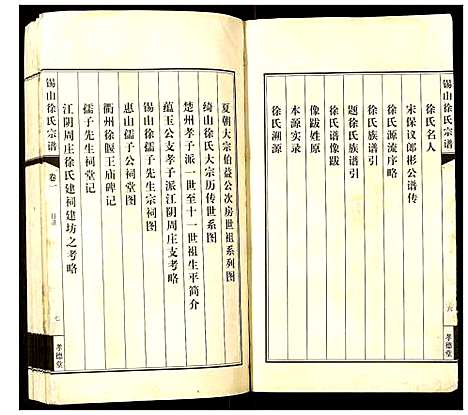 锡山徐氏宗谱
徐氏名人
宋保议郎彬公谱传
徐氏源流序略
徐氏族谱引
题徐氏族谱引
徐氏谱像跋
像跋姓原
本源实录
徐氏溯源
六
孝德堂
夏朝大宗伯益公次房世祖系列图
绮山徐氏大宗历传世系图
楚州孝子派十一世祖生平简介
蕴玉公支孝子派江阴周庄支考略
锡山徐孺子先生宗祠图
惠山儒子公祠图
衢州徐偃王庙碑记
儒子先生祠堂记
江阴周庄徐氏建祠建坊之考略
锡山徐氏宗谱
卷一
目录
七
孝德堂